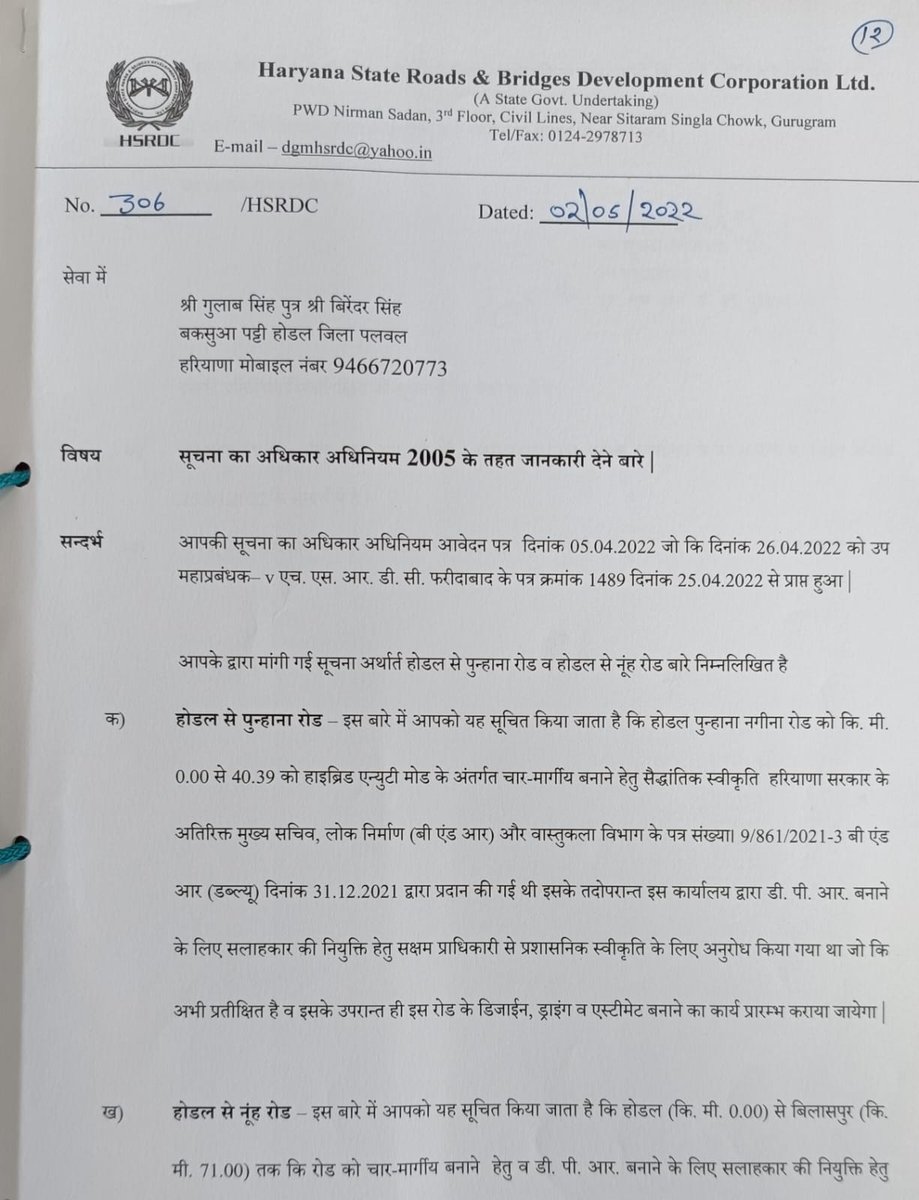 12
Haryana State Roads & Bridges Development Corporation Ltd.
(A State Govt. Undertaking)
PWD Nirman Sadan, 3rd Floor, Civil Lines, Near Sitaram Singla Chowk, Gurugram
Tel/Fax: 0124-2978713
HSRDC
E-mail – dgmhsrdc@yahoo.in
No. 306 /HSRDC
Dated: 02/05/2022
सेवा में
श्री गुलाब सिंह पुत्र श्री बिरेंदर सिंह
बकसुआ पट्टी होडल जिला पलवल
हरियाणा मोबाइल नंबर 9466720773
विषय सूचना का अधिकार अधिनियम 2005 के तहत जानकारी देने बारे |
सन्दर्भ आपकी सूचना का अधिकार अधिनियम आवेदन पत्र दिनांक 05.04.2022 जो कि दिनांक 26.04.2022 को उप
महाप्रबंधक– v एच. एस. आर. डी. सी. फरीदाबाद के पत्र क्रमांक 1489 दिनांक 25.04.2022 से प्राप्त हुआ |
आपके द्वारा मांगी गई सूचना अर्थार्त होडल से पुन्हाना रोड व होडल से नूंह रोड बारे निम्नलिखित है
क) होडल से पुन्हाना रोड – इस बारे में आपको यह सूचित किया जाता है कि होडल पुन्हाना नगीना रोड को कि. मी.
0.00 से 40.39 को हाइब्रिड एन्युटी मोड के अंतर्गत चार-मार्गीय बनाने हेतु सैद्धांतिक स्वीकृति हरियाणा सरकार के
अतिरिक्त मुख्य सचिव, लोक निर्माण (बी एंड आर) और वास्तुकला विभाग के पत्र संख्या। 9/861/2021-3 बी एंड
आर (डब्ल्यू) दिनांक 31.12.2021 द्वारा प्रदान की गई थी इसके तदोपरान्त इस कार्यालय द्वारा डी. पी. आर. बनाने
के लिए सलाहकार की नियुक्ति हेतु सक्षम प्राधिकारी से प्रशासनिक स्वीकृति के लिए अनुरोध किया गया था जो कि
अभी प्रतीक्षित है व इसके उपरान्त ही इस रोड के डिजाईन, ड्राइंग व एस्टीमेट बनाने का कार्य प्रारम्भ कराया जायेगा |
ख) होडल से नूंह रोड – इस बारे में आपको यह सूचित किया जाता है कि होडल (कि. मी. 0.00) से बिलासपुर (कि.
मी. 71.00) तक कि रोड को चार-मार्गीय बनाने हेतु व डी. पी. आर. बनाने के लिए सलाहकार की नियुक्ति हेतु